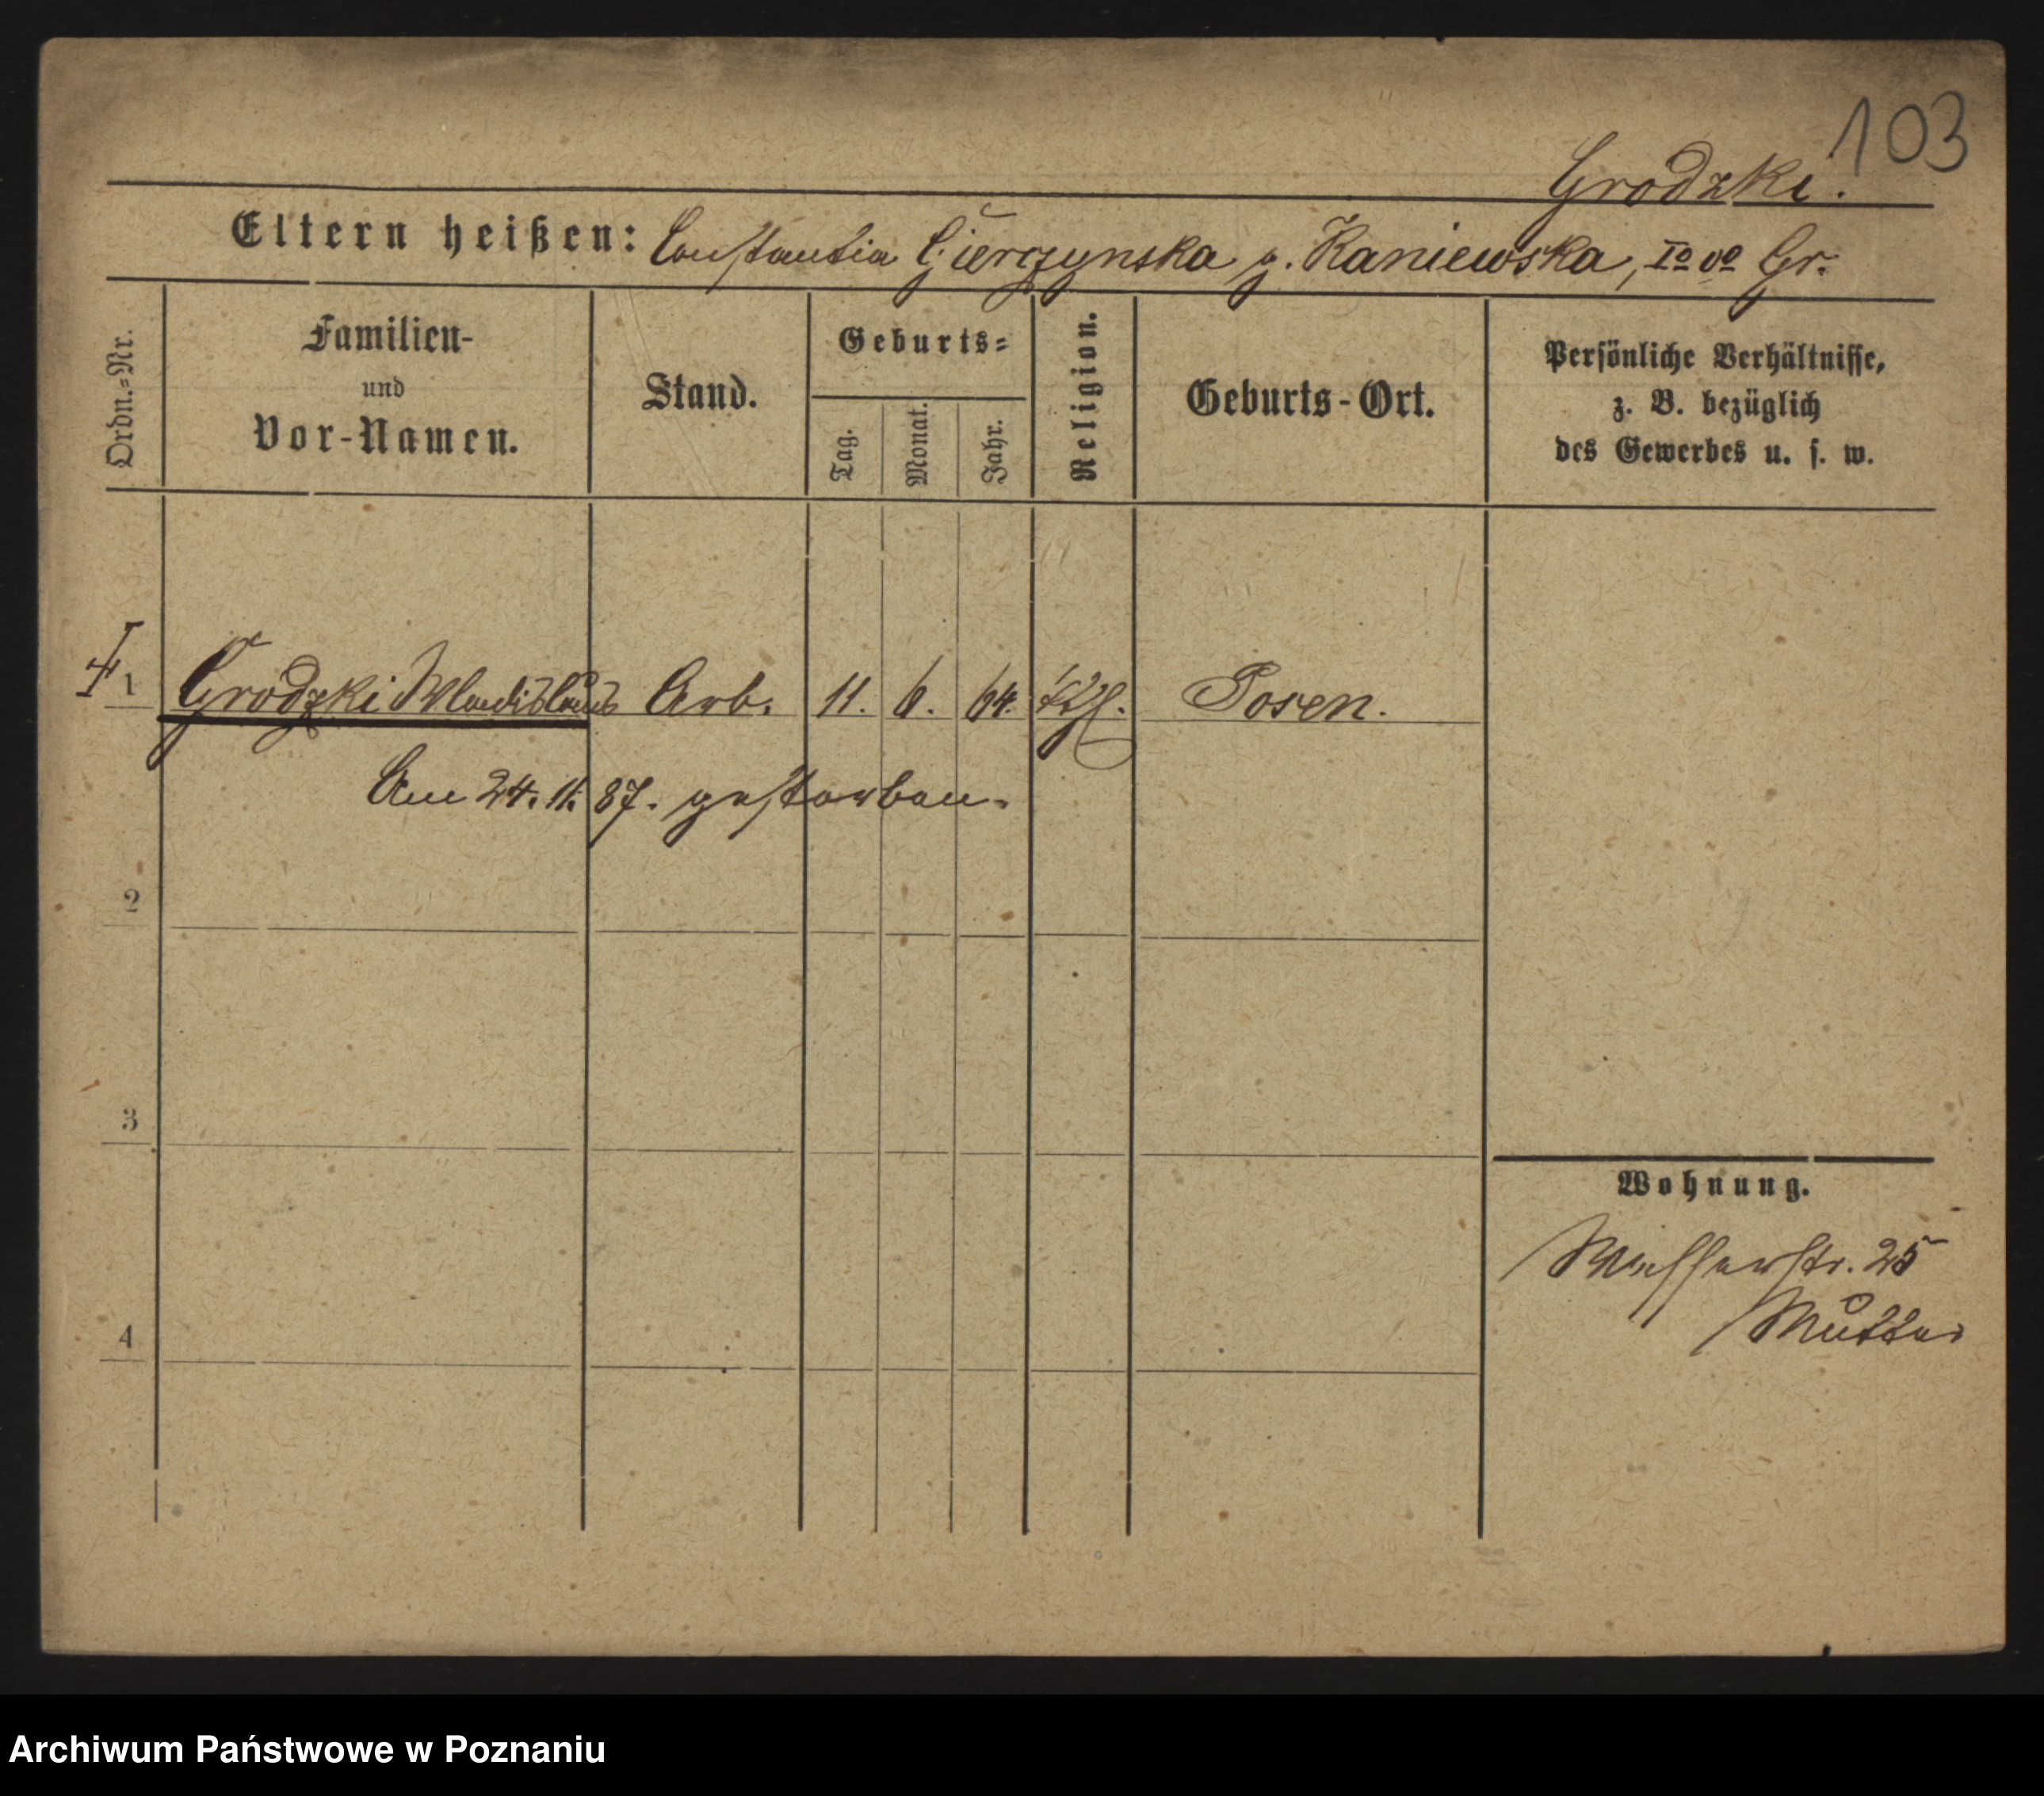 103
Grodzki.
Eltern heißen: Constantia Gierczynska g. Kaniewska, Io vo Gr.
Ordn.=Nr.
Familien-
und
Vor-Namen.
Stand.
Geburts=
Tag.
Monat.
Jahr.
Religion.
Geburts-Ort.
Persönliche Verhältnisse,
z. B. bezüglich
des Gewerbes u. s. w.
1 Grodzki Wladislaus Arb. 11. 6. 64. Posen.
Am 24. 11. 87. gestorben.
2
3
4
Wohnung.
Wasserstr. 25
Mutter
Archiwum Państwowe w Poznaniu